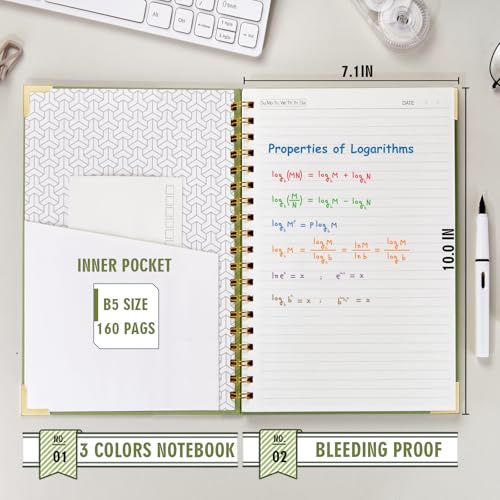 7.1IN
Su Mo Tu We Th Fr Sa
DATE
Properties of Logarithms
log_b(MN) = log_b M + log_b N
log_b(M/N) = log_b M - log_b N
log_b M^P = P log_b M
log_b M = log_a M / log_a b = ln M / ln b = log M / log b
ln e^x = x ; e^(ln x) = x
log_b b^x = x ; b^(log_b x) = x
10.0 IN
INNER POCKET
B5 SIZE
160 PAGS
NO.
01
3 COLORS NOTEBOOK
NO.
02
BLEEDING PROOF